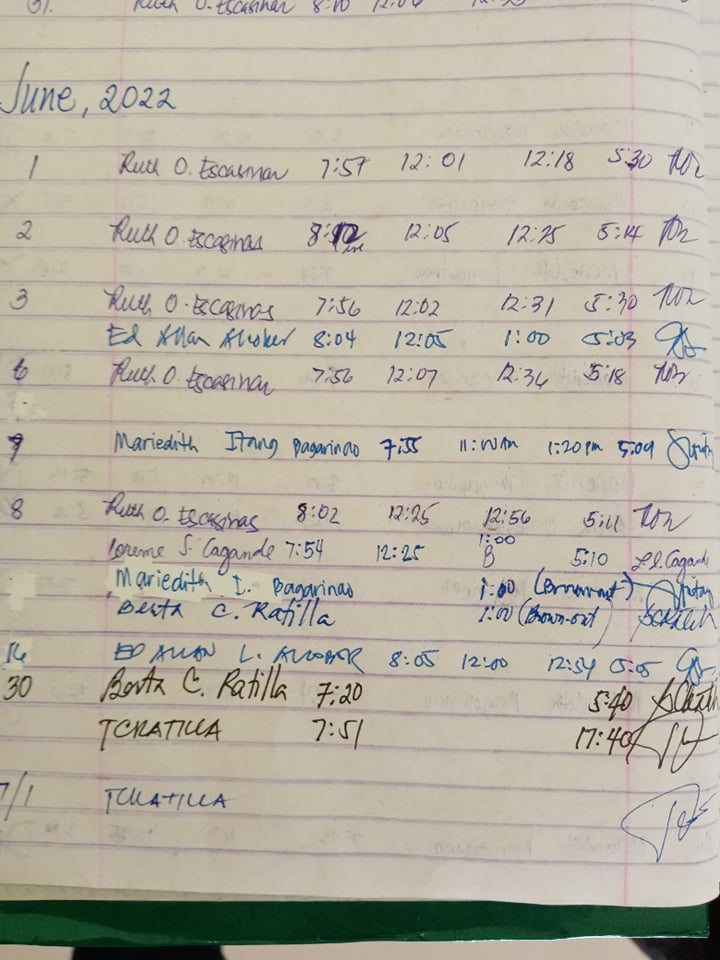 31. Ruth O. Escasinas 8:10 12:04
June, 2022
1 Ruth O. Escasinas 7:57 12:01 12:18 5:30
2 Ruth O. Escasinas 12:05 12:25 5:14
3 Ruth O. Escasinas 7:56 12:02 12:31 5:30
Ed Allan Alcober 8:04 12:05 1:00 5:03
6 Ruth O. Escasinas 7:56 12:07 12:34 5:18
7 Mariedith Itang Bagarinao 7:55 11:00am 1:20pm 5:09
8 Ruth O. Escasinas 8:02 12:25 12:56 5:11
Loreme S. Cagande 7:54 12:25 1:00 5:10
Mariedith I. Bagarinao 1:00 (Brown-out)
Berta C. Ratilla 1:00 (Brown-out)
14 ED ALLAN L. ALCOBER 8:05 12:00 12:54 5:05
30 Berta C. Ratilla 7:20 5:40
TCRATILLA 7:51 17:40
7/1 TCRATILLA